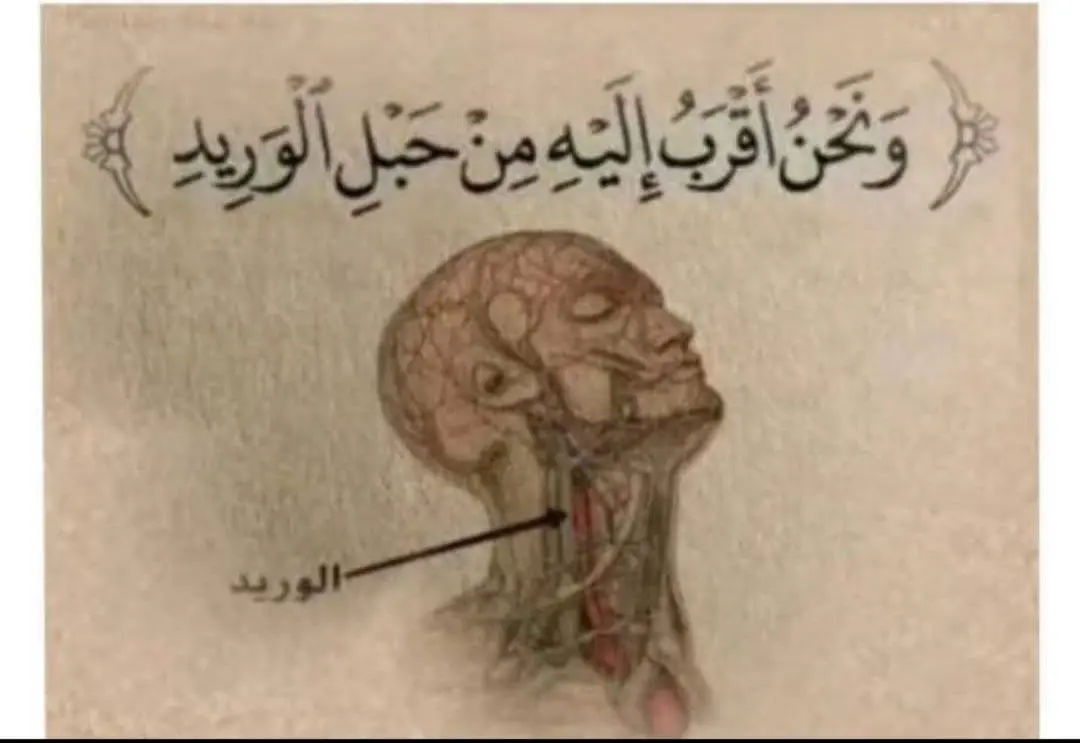 ﴿ وَنَحْنُ أَقْرَبُ إِلَيْهِ مِنْ حَبْلِ ٱلْوَرِيدِ ﴾
الوريد